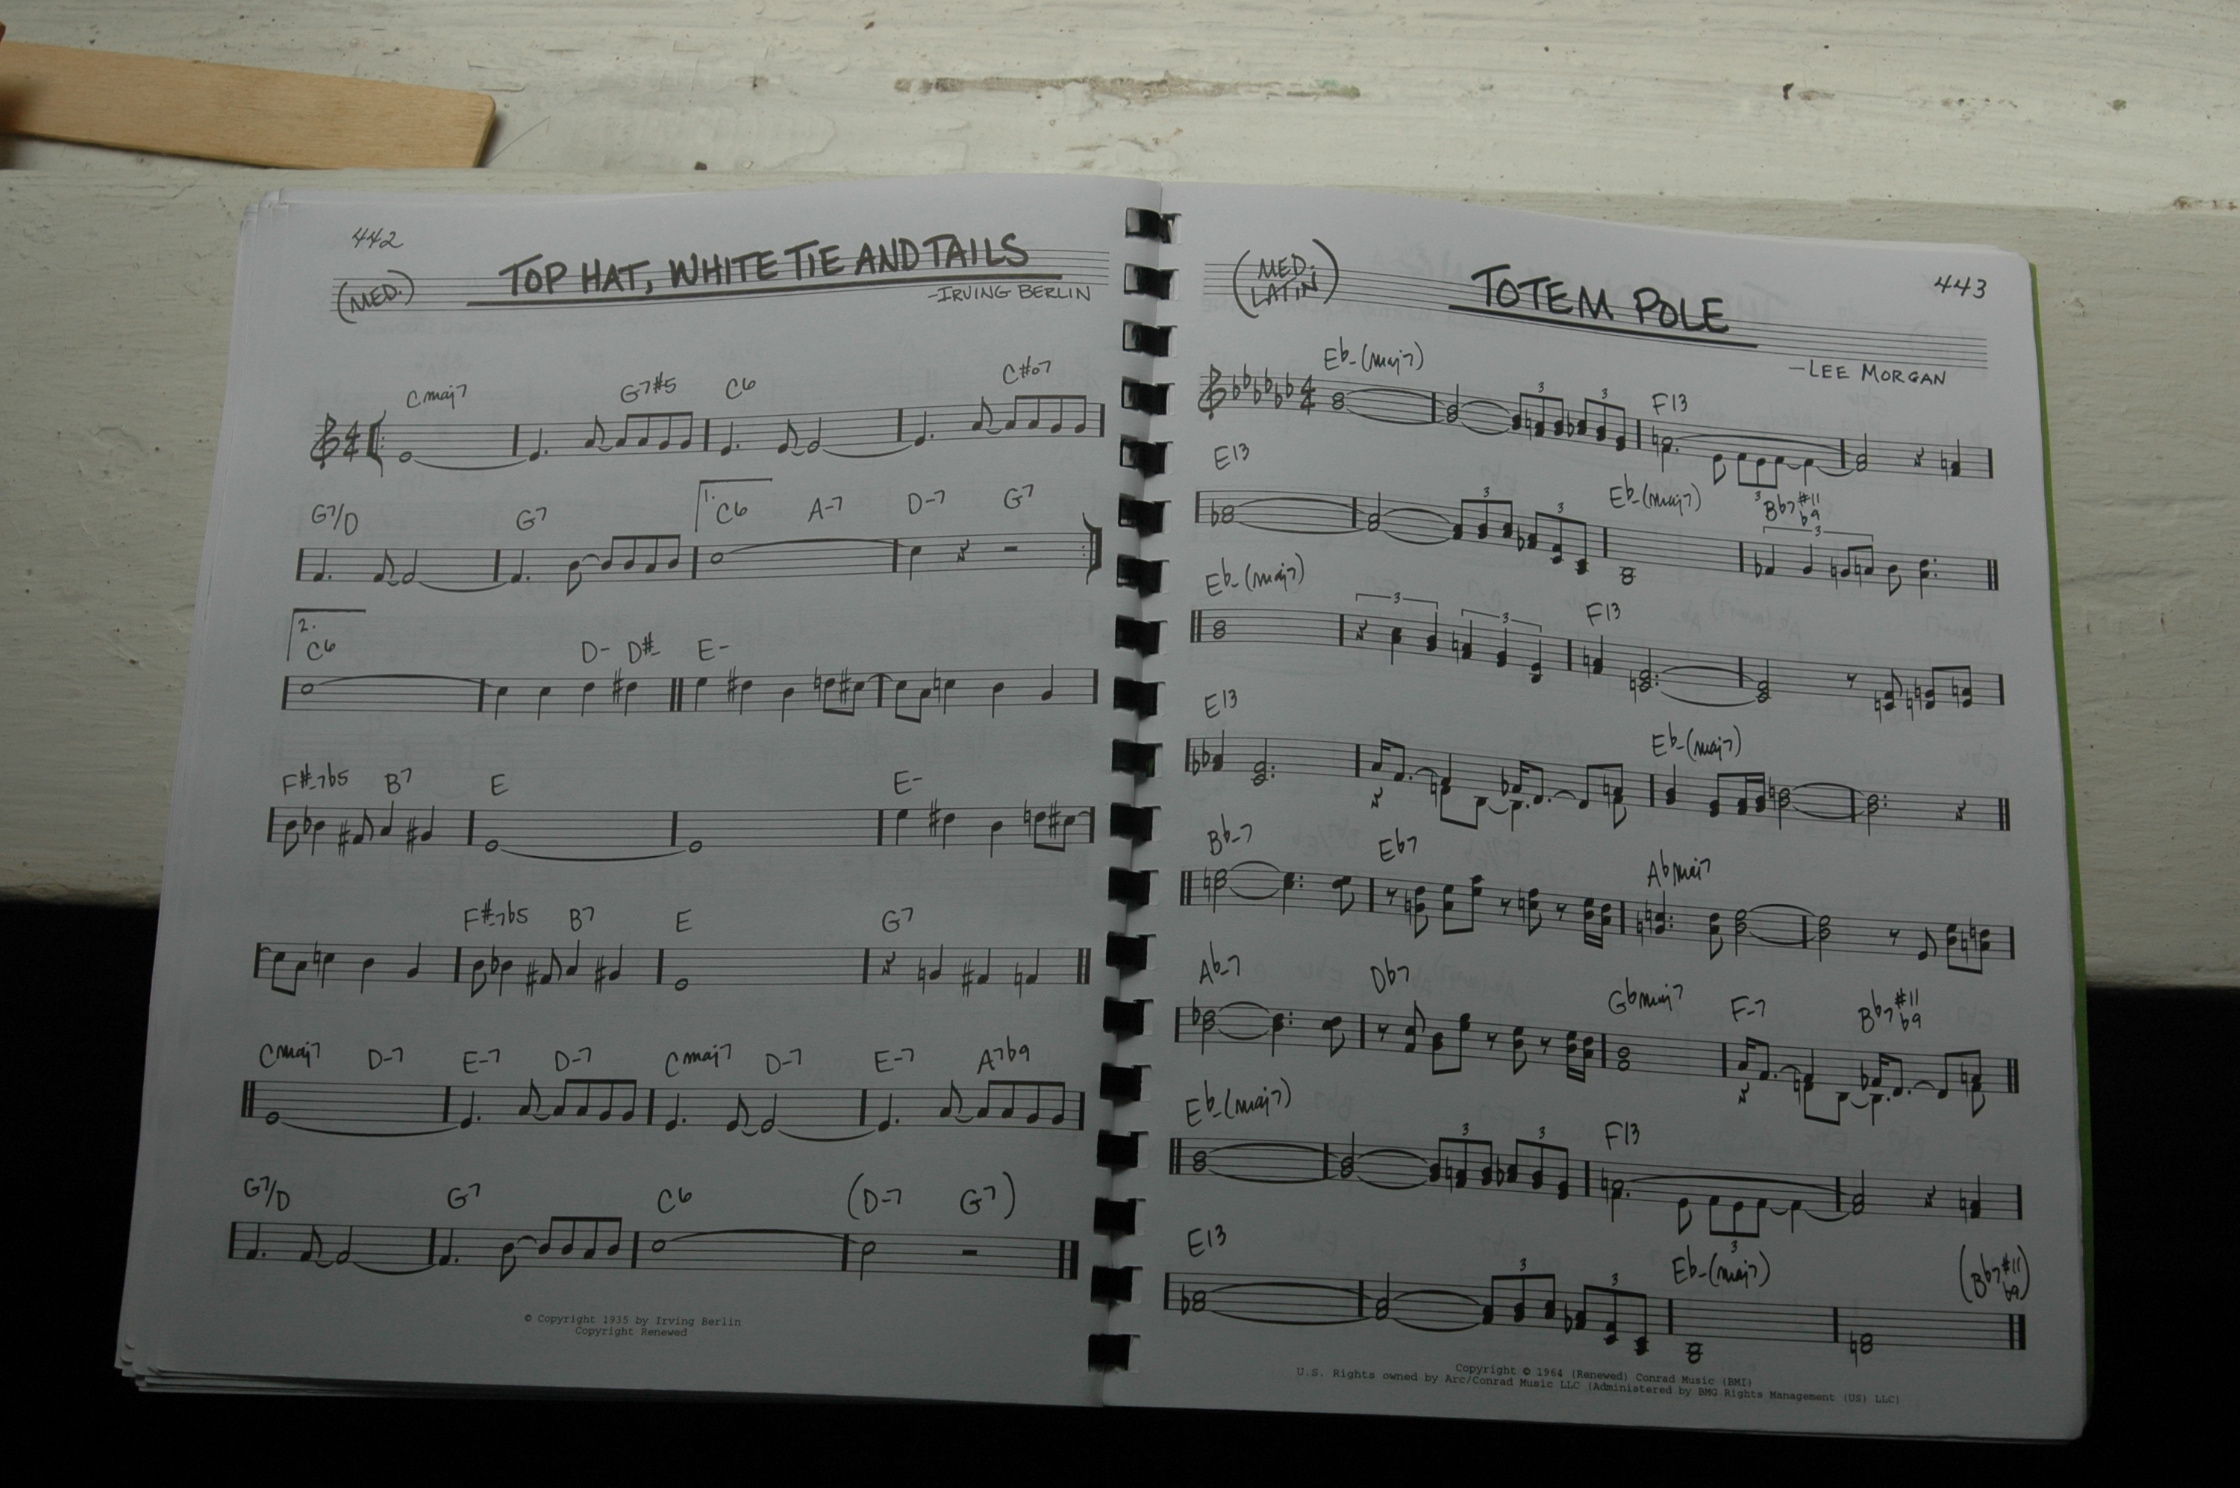 442
(MED.)
TOP HAT, WHITE TIE AND TAILS
-IRVING BERLIN
Cmaj7 G7#5 C6 C#o7
4 4
G7/D G7 1. C6 A-7 D-7 G7
2. C6 D- D#- E-
F#-7b5 B7 E E-
F#-7b5 B7 E G7
Cmaj7 D-7 E-7 D-7 Cmaj7 D-7 E-7 A7b9
G7/D G7 C6 (D-7 G7)
© Copyright 1935 by Irving Berlin
Copyright Renewed
443
(MED. LATIN)
TOTEM POLE
-LEE MORGAN
Eb-(maj7) F13
4 4 3 3 3
E13 Eb-(maj7) Bb7#11b9
3 3 3
Eb-(maj7) F13
3 3
E13 Eb-(maj7)
Bb-7 Eb7 Abmaj7
Ab-7 Db7 Gbmaj7 F-7 Bb7#11b9
Eb-(maj7) F13
3 3 3
E13 Eb-(maj7) (Bb7#11b9)
3 3
Copyright © 1964 (Renewed) Conrad Music (BMI)
U.S. Rights owned by Arc/Conrad Music LLC (Administered by BMG Rights Management (US) LLC)